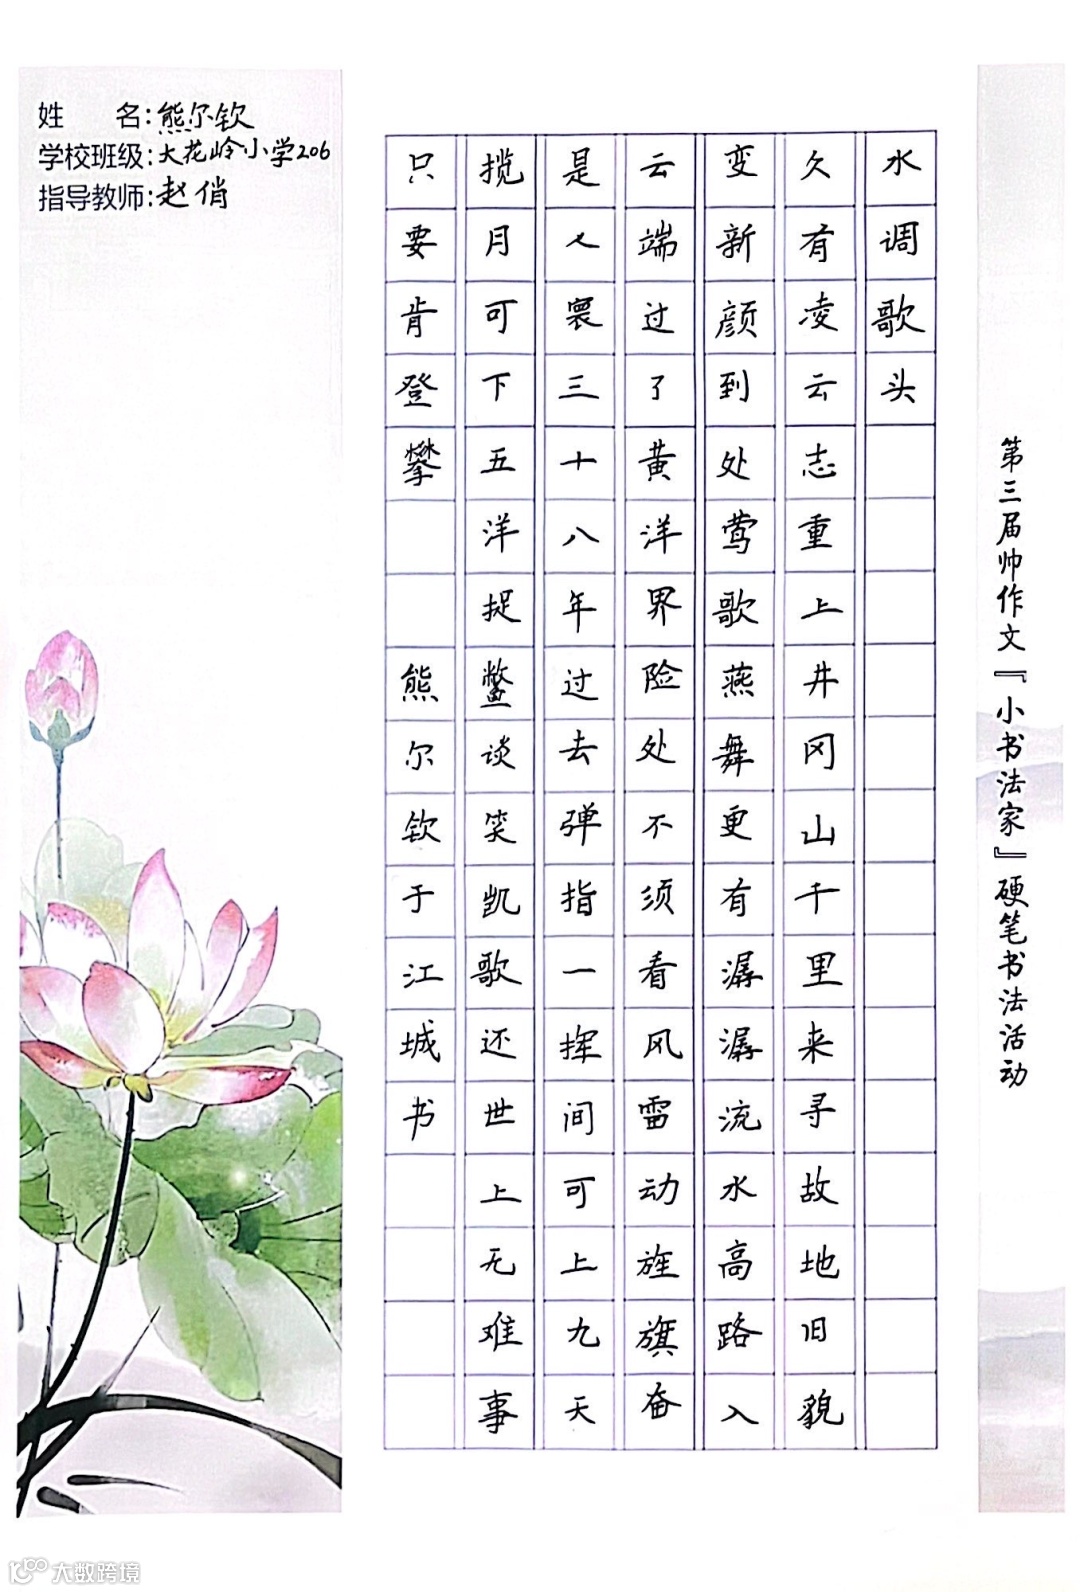 姓 名：熊尔钦
学校班级：大花岭小学206
指导教师：赵俏
水调歌头
久有凌云志重上井冈山千里来寻故地旧貌
变新颜到处莺歌燕舞更有潺潺流水高路入
云端过了黄洋界险处不须看风雷动旌旗奋
是人寰三十八年过去弹指一挥间可上九天
揽月可下五洋捉鳖谈笑凯歌还世上无难事
只要肯登攀 熊尔钦于江城书
第三届帅作文『小书法家』硬笔书法活动
大数跨境